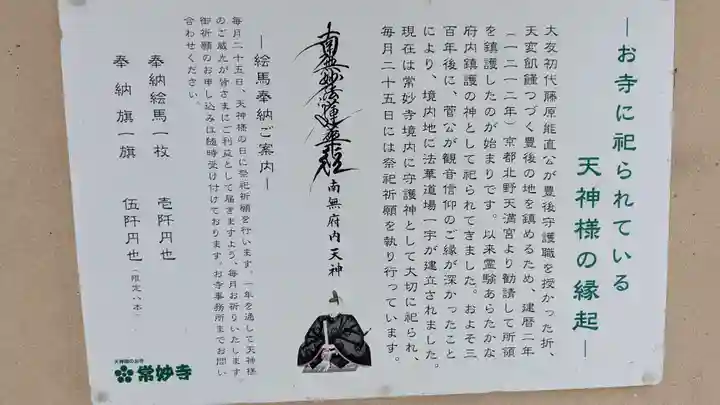 ―お寺に祀られている
天神様の縁起―
大友初代藤原能直公が豊後守護職を授かった折、
天変飢饉つづく豊後の地を鎮めるため、建暦二年
（一二一二年）京都北野天満宮より勧請して所領
を鎮護したのが始まりです。以来霊験あらたかな
府内鎮護の神として祀られてきました。およそ三
百年後に、菅公が観音信仰のご縁が深かったこと
により、境内地に法華道場一宇が建立されました。
現在は常妙寺境内に守護神として大切に祀られ、
毎月二十五日には祭祀祈願を執り行っています。
南無妙法蓮華経
南無府内天神
―絵馬奉納ご案内―
毎月二十五日、天神様の日に祭祀祈願を行います。一年を通して天神様
のご威光が皆さまにご利益として届きますよう、毎月お祈りいたします。
御祈願のお申し込みは随時受け付けております。お寺事務所までお問い
合わせください。
奉納絵馬一枚　壱阡円也
奉納旗一旗　伍阡円也（限定八本）
天神様のお寺
常妙寺